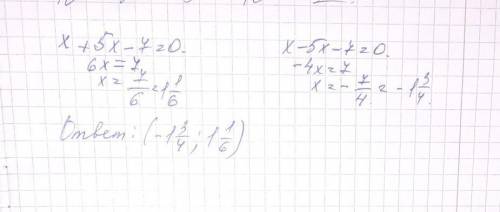 x + 5x - 7 = 0.
6x = 7
x = 7/6 = 1 1/6
x - 5x - 7 = 0.
-4x = 7
x = - 7/4 = - 1 3/4.
Ответ: (-1 3/4 ; 1 1/6)